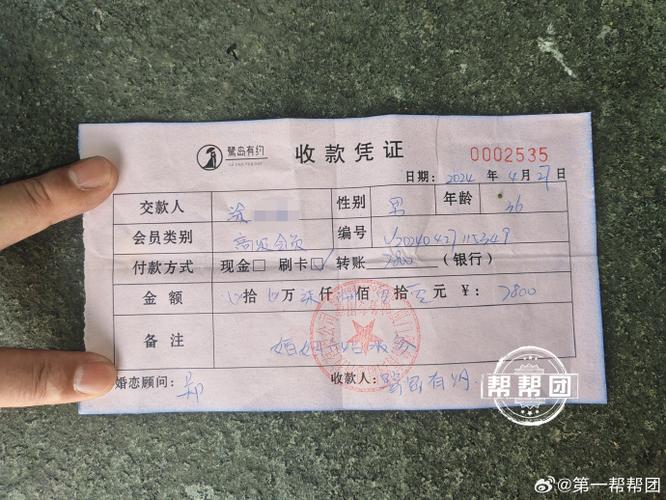 鹭岛有约 收款凭证 0002535
日期：2024 年 4 月 27 日
交款人 性别 男 年龄 36
会员类别 高级会员 编号
付款方式 现金□ 刷卡☑ 转账 7800 （银行）
金额 拾 万 柒 仟 捌 佰 零 拾 零 元 ¥：7800
备注 婚姻介绍服务
婚恋顾问：郑 收款人：鹭岛有约
帮帮团
@第一帮帮团